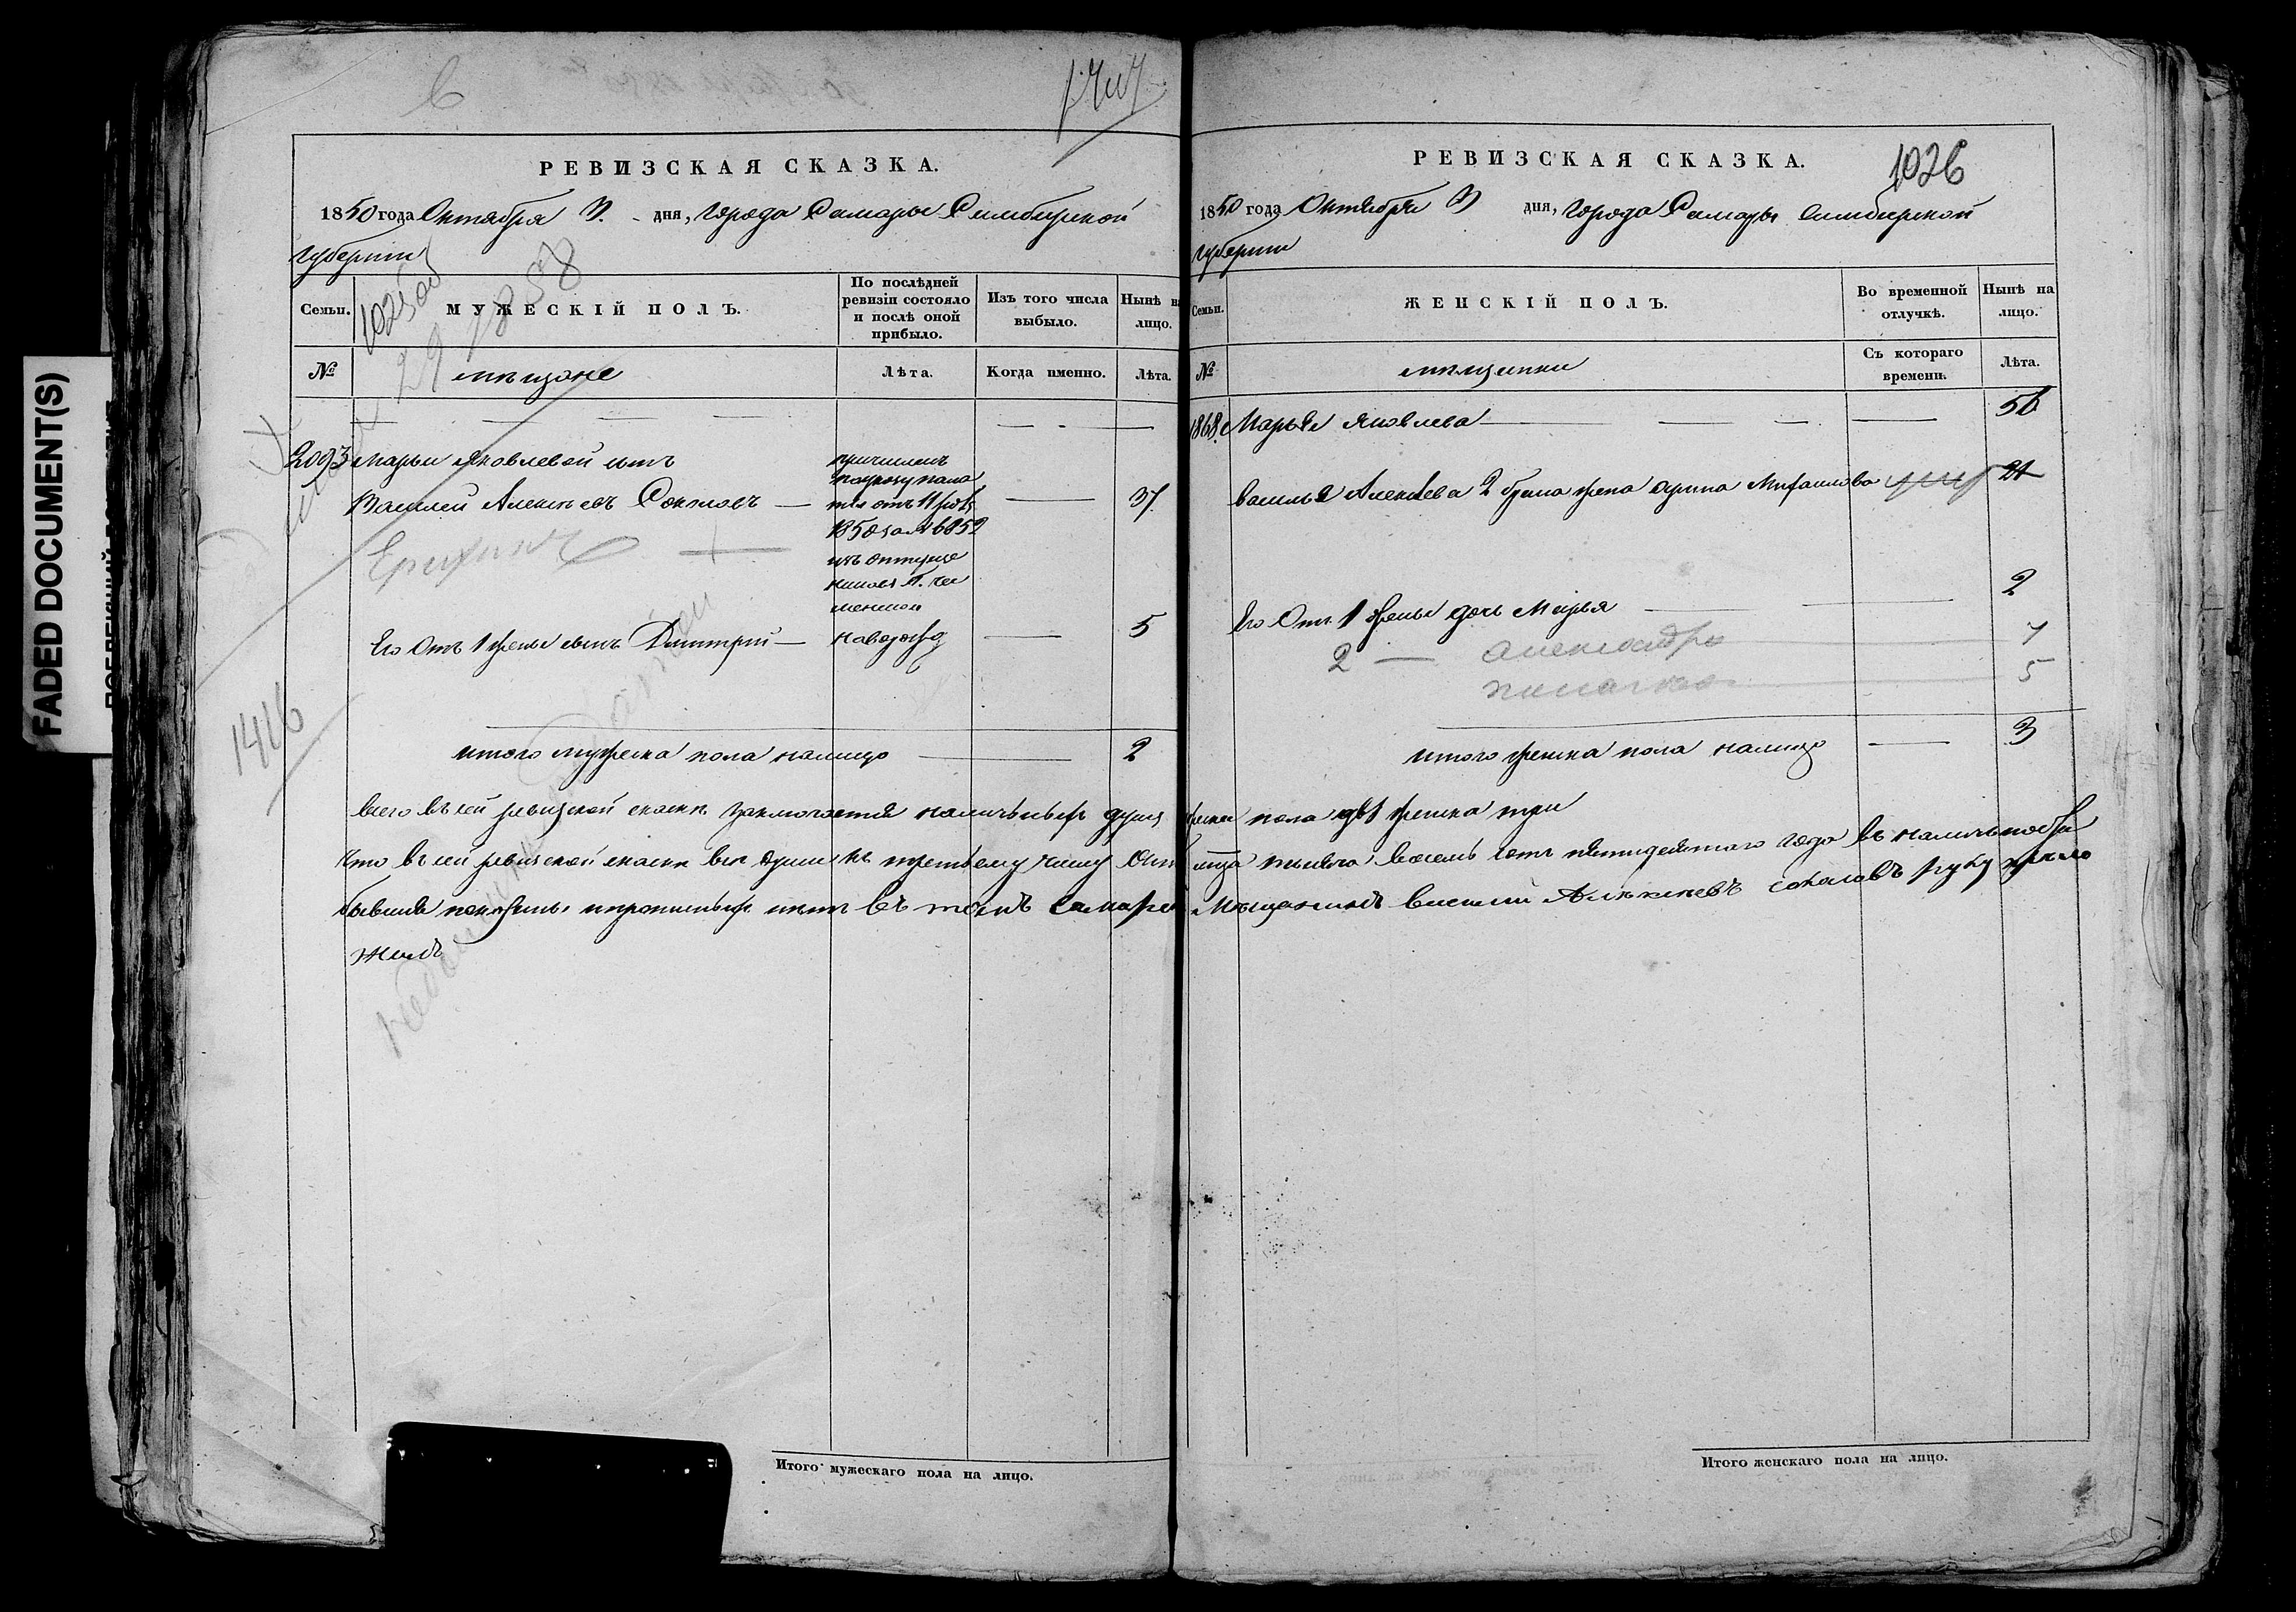 FADED DOCUMENT(S)
РЕВИЗСКАЯ СКАЗКА.
1850 года Октября 3. дня, города Самары Симбирской
губернии
Семьи.
МУЖЕСКІЙ ПОЛЪ.
По послѣдней ревизіи состояло и послѣ оной прибыло.
Изъ того числа выбыло.
Нынѣ на лицо.
№
мѣщане
Лѣта.
Когда именно.
Лѣта.
1025 об
29 1858
2093 Марьи Яковлевой сынъ
Василей Алексѣевъ Соколовъ 37
причисленъ
по указу пала
1850 за № 6852
Его отъ 1 жены сынъ Дмитрий новорожд 5
1416
итого мужеска пола налицо 2
РЕВИЗСКАЯ СКАЗКА.
1026
1850 года Октября 3 дня, города Самары Симбирской
губернии
Семьи.
ЖЕНСКІЙ ПОЛЪ.
Во временной отлучкѣ.
Нынѣ на лицо.
№
мѣщанки
Съ котораго времени.
Лѣта.
1868 Марья Яковлева 56
Василья Алексѣева 2 брака жена Арина Михаилова 21
Его отъ 1 жены дочь Марья 2
2 Александра 7
5
итого женска пола налицо 3
всего въ сей ревизской сказкѣ заключается наличныхъ душъ мужска пола двѣ женска три
Что въ сей ревизской сказкѣ все души къ третьему числу Октября тысяча восемь сотъ пятидесятого года въ наличности
бывшие показаны и прописныхъ нетъ въ томъ самарской Мѣщанинъ Василий Алексеевъ Соколовъ руку прило
жилъ
Итого мужескаго пола на лицо.
Итого женскаго пола на лицо.